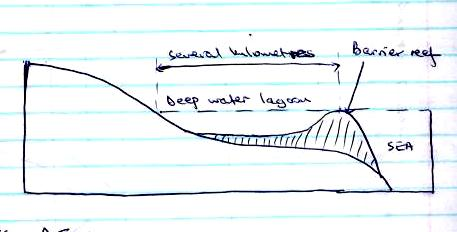 several kilometres
Barrier reef
Deep water lagoon
SEA